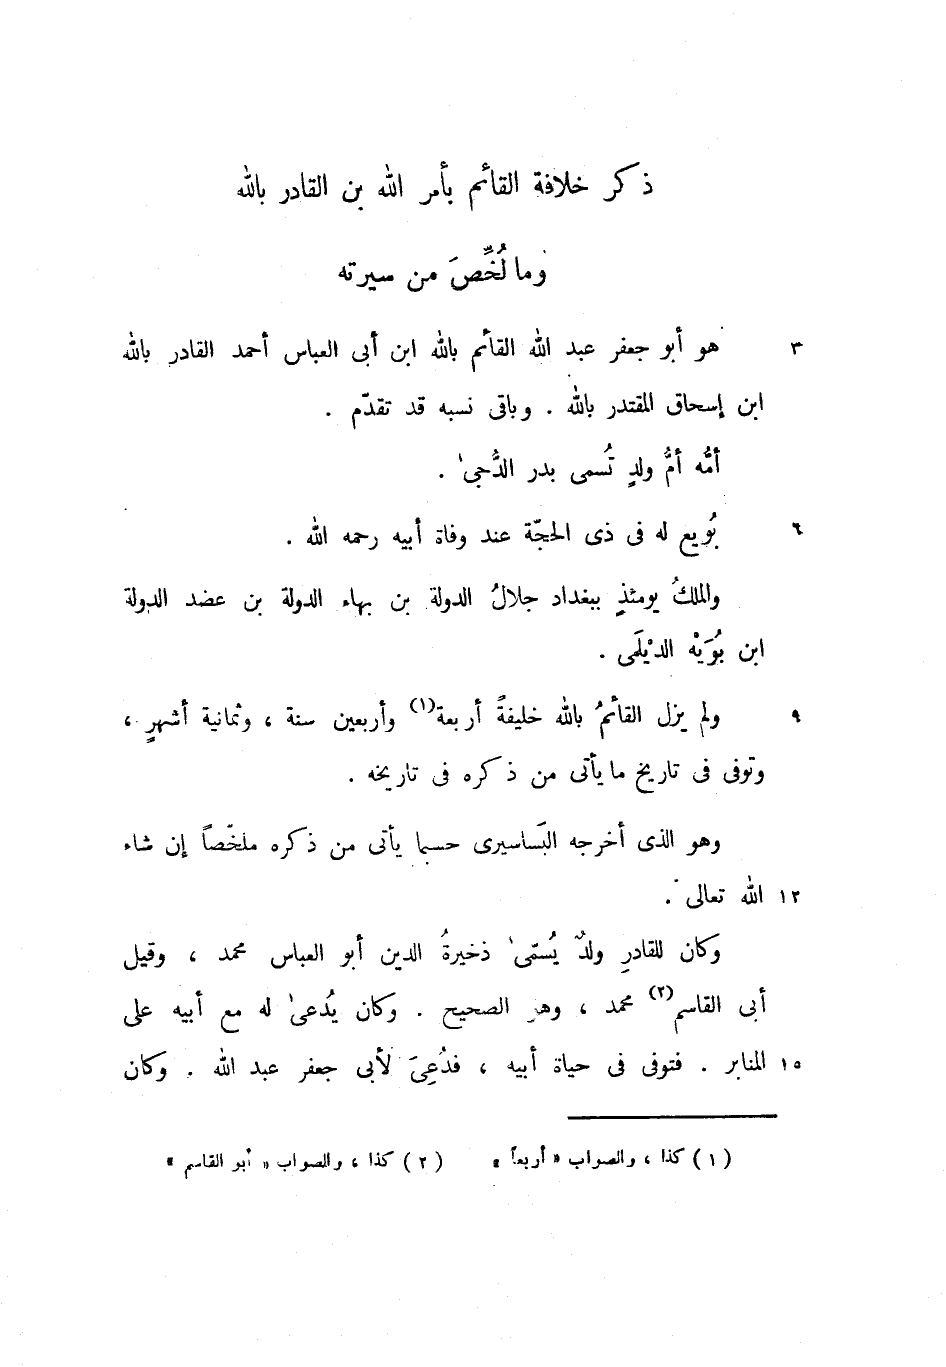 ذكر خلافة القائم بأمر الله بن القادر بالله
وما لُخِّصَ من سيرته
٣ هو أبو جعفر عبد الله القائم بالله ابن أبى العباس أحمد القادر بالله
ابن إسحاق المقتدر بالله . وباقى نسبه قد تقدّم .
أمُّه أمُّ ولدٍ تُسمى بدر الدُّجىٰ .
٦ بُويع له فى ذى الحجّة عند وفاة أبيه رحمه الله .
والملكُ يومئذٍ ببغداد جلالُ الدولة بن بهاء الدولة بن عضد الدولة
ابن بُوَيْه الديْلَمى .
٩ ولم يزل القائمُ بالله خليفةً أربعة(١) وأربعين سنة ، وثمانية أشهرٍ ،
وتوفى فى تاريخ ما يأتى من ذكره فى تاريخه .
وهو الذى أخرجه البَساسيرى حسبما يأتى من ذكره ملخّصاً إن شاء
١٢ الله تعالى .
وكان للقادرِ ولدٌ يُسمّىٰ ذخيرةُ الدين أبو العباس محمد ، وقيل
أبى القاسم(٢) محمد ، وهو الصحيح . وكان يُدعىٰ له مع أبيه على
١٥ المنابر . فتوفى فى حياة أبيه ، فدُعِىَ لأبى جعفر عبد الله . وكان
(١) كذا ، والصواب « أربعاً » (٢) كذا ، والصواب « أبو القاسم »